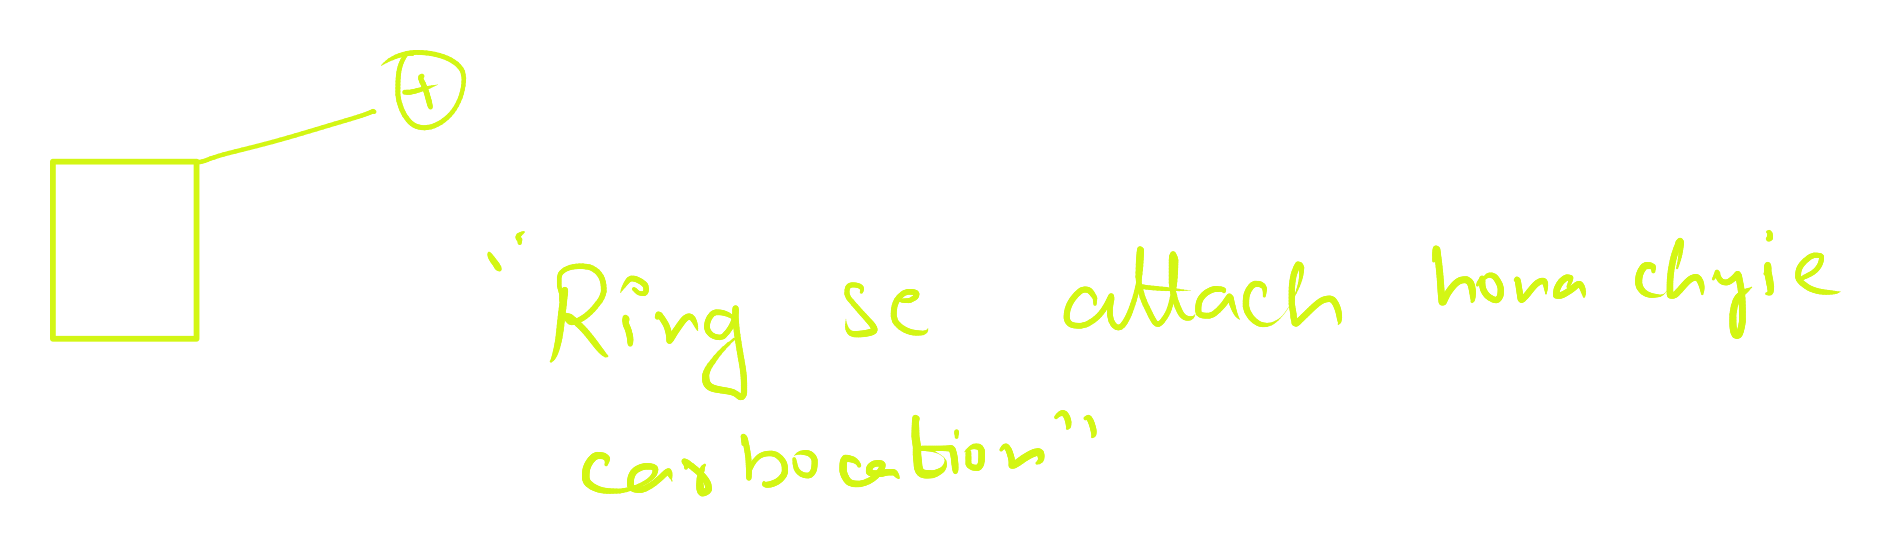 +
"Ring se attach hona chyie
carbocation"